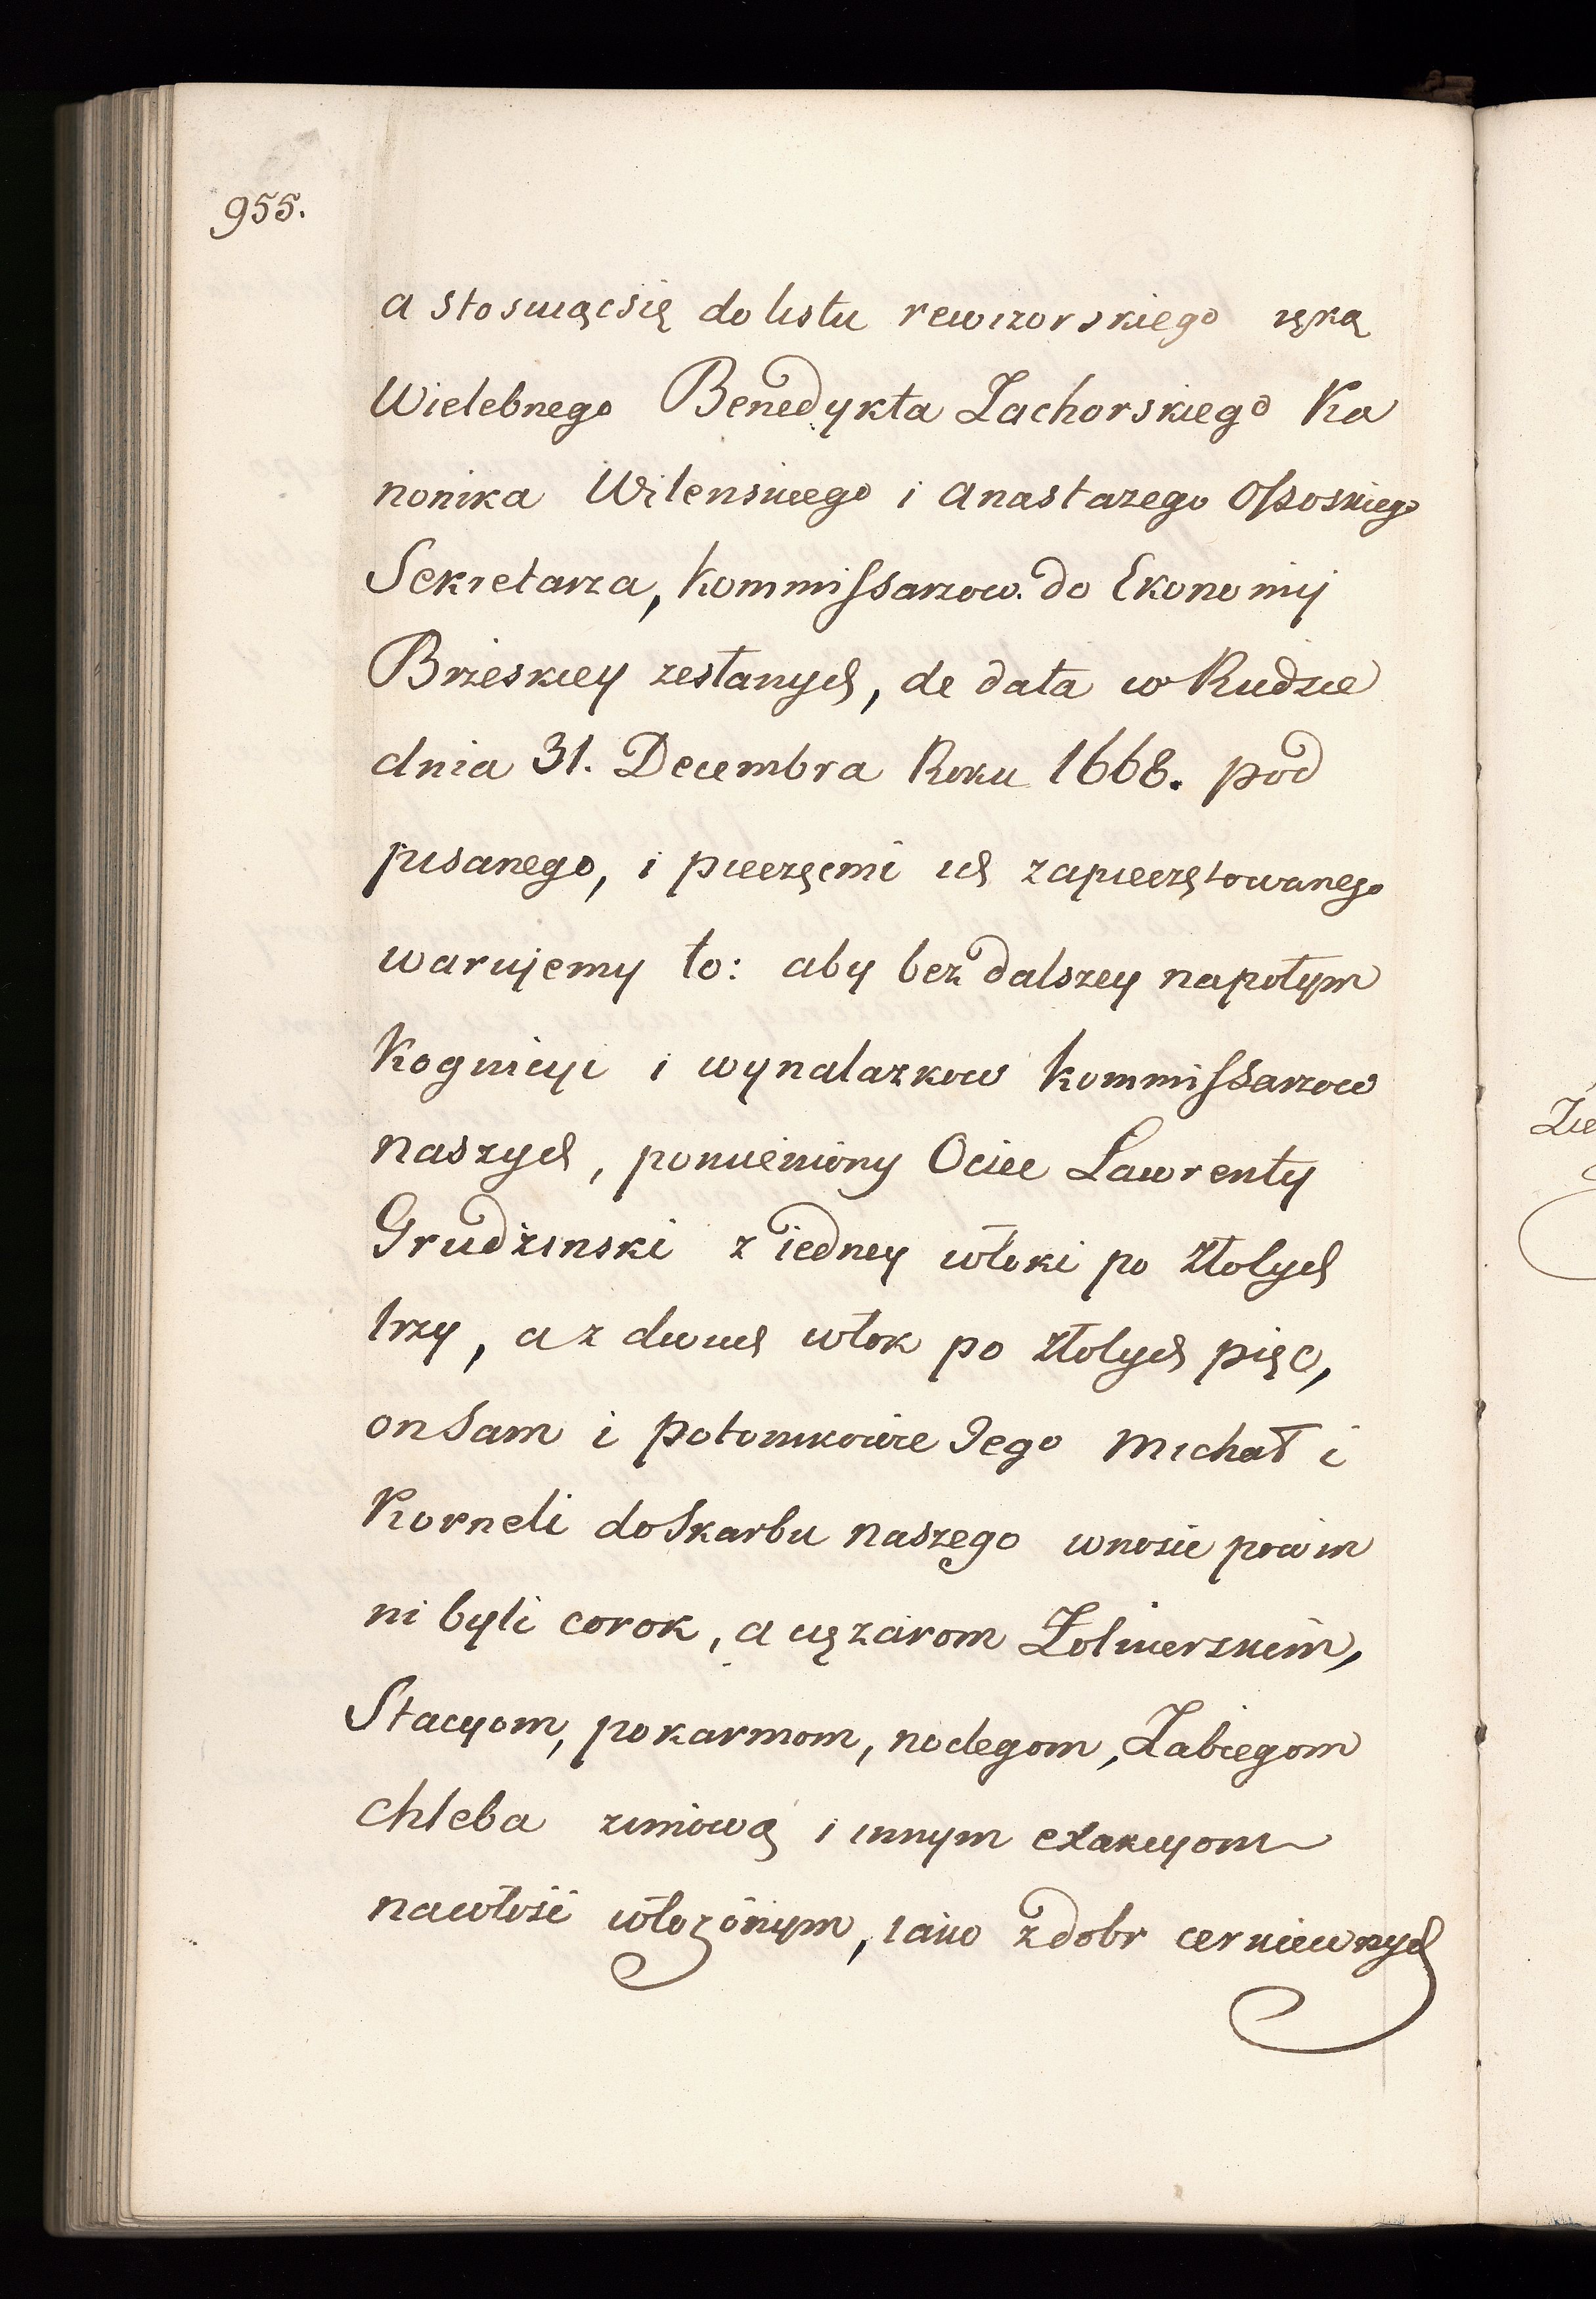 955.
a stosuiącsię do listu rewizorskiego ręką
Wielebnego Benedykta Żachorskiego Ka
nonika Wilenskiego i Anastazego Ossoskiego
Sekretarza, Kommissarzow do Ekonomij
Brzeskiey zesłanych, de data w Rudzie
dnia 31. Decembra Roku 1668. pod
pisanego, i pieczęcmi ich zapieczętowanego
warujemy to: aby bez dalszey napotym
Kognicyi i wynalazkow Kommissarzow
naszych, pomieniony Ociec Lawrenty
Grudzinski z iedney włoki po złotych
trzy, a z dwuch włok po złotych pięc,
on Sam i potomkowie Jego Michał i
Korneli do Skarbu naszego wnosic powin
ni byli corok, a cięzarom Żołnierskim,
Stacyom, pokarmom, noclegom, Zabiegom
chleba zimową i innym exakcyom
nawłość włozonym, iako z dobr cerkiewnych